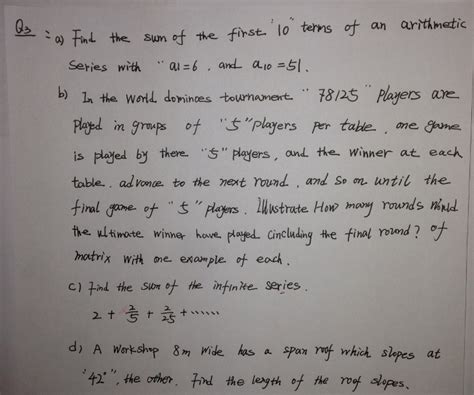 Q3 : a) Find the sum of the first "10" terms of an arithmetic
series with "a1=6, and a10=51.
b) In the World dominoes tournament "78125" players are
played in groups of "5" players per table, one game
is played by there "5" players, and the winner at each
table. advance to the next round, and so on until the
final game of "5" players. Illustrate How many rounds would
the ultimate winner have played (including the final round? of
matrix with one example of each.
c) Find the sum of the infinite series.
2 + 2/5 + 2/25 + ......
d) A workshop 8m wide has a span roof which slopes at
"42°", the other. Find the length of the roof slopes.